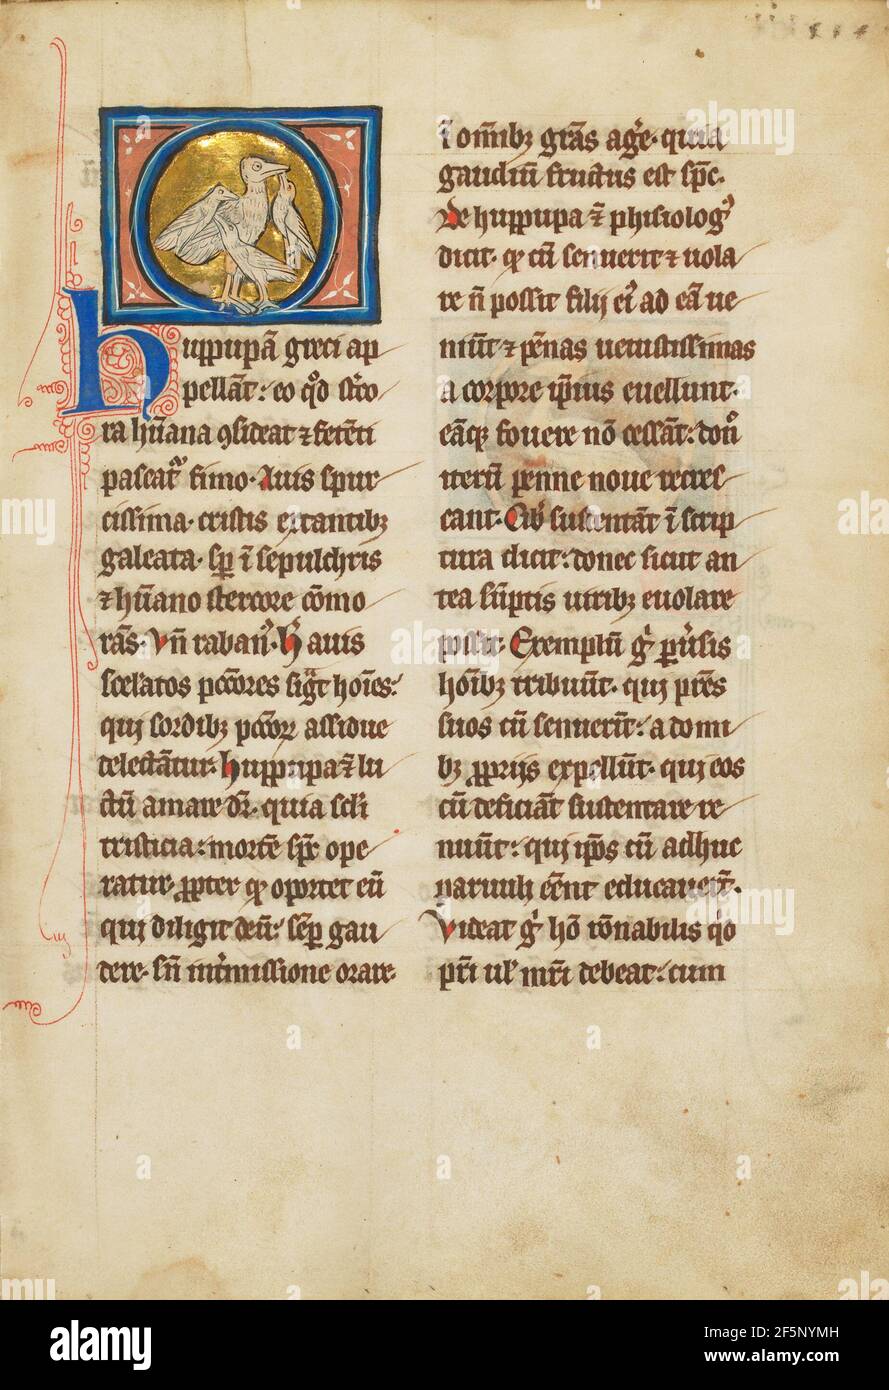 huppupā greci ap
pellāt: eo qͦd st̾co
ra hūana ꝯsideat ⁊ fetēti
pascat᷑ fimo. Auis spur
cissima. cristis extantibꝫ
galeata. sp̱ ī sepulchris
⁊ hūano stercore cōmo
rās. Vn̄ raban᷒. H̾ auis
sceleratos pc̄cōres sigͣt hoīes:
qui sordibꝫ pc̄coꝝ assidue
delectāntur. huppupa ⁊̄ lu
ctū amare dr̄. quia sc̄li
tristicia: mortē sp̄c ope
ratur. ꝓpter qͦ oportet eū
qui diligit deū: semp̱ gau
dere. sn̄ int̾missione orare.
ī om̄ibꝫ grās ag̾e. quia
gaudiū fructus est sp̄c.
De huppupa ⁊̄ phisiolog᷒
dicit. qͦ cū senuerit ⁊ uola
re n̄ possit filij ei᷒ ad eā ue
niūt ⁊ pēnas uetustissimas
a corpore ip̄ius euellunt.
eāqꝫ fouere nō cessāt: don̾
iterū penne noue recres
cant. Cib̾ sustentāt ī scrip
tura dicit: donec sicut an
tea sūptis uiribꝫ euolare
possit. Exemplū g̾ p̱u̾sis
hoībꝫ tribuūt. qui pr̄es
suos cū senuerīt: a domi
bꝫ ꝓprijs expellūt. qui eos
cū deficiāt sustentare re
nuūt: qui ip̄os cū adhuc
paruuli eēnt educauerūt.
Videat g̾ hō rōnabilis qͥd
pr̄i ul᷑ mr̄i debeat: cum
alamy
Image ID: 2F5NYMH
www.alamy.com